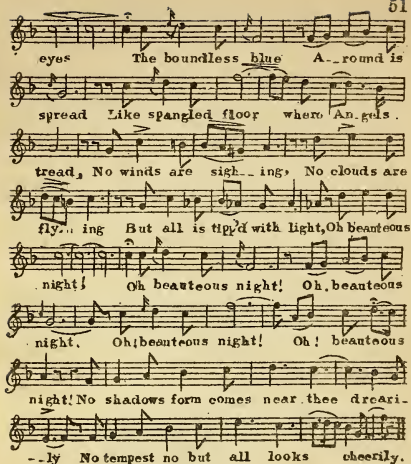 51
eyes The boundless blue A--round is
spread Like spangled floor where An-gels
tread, No winds are sigh--ing, No clouds are
fly-- ing But all is tipp'd with light, Oh beauteous
night! Oh beauteous night! Oh, beauteous
night, Oh! beauteous night! Oh! beauteous
night! No shadows form comes near thee dreari-
--ly No tempest no but all looks cheerily.